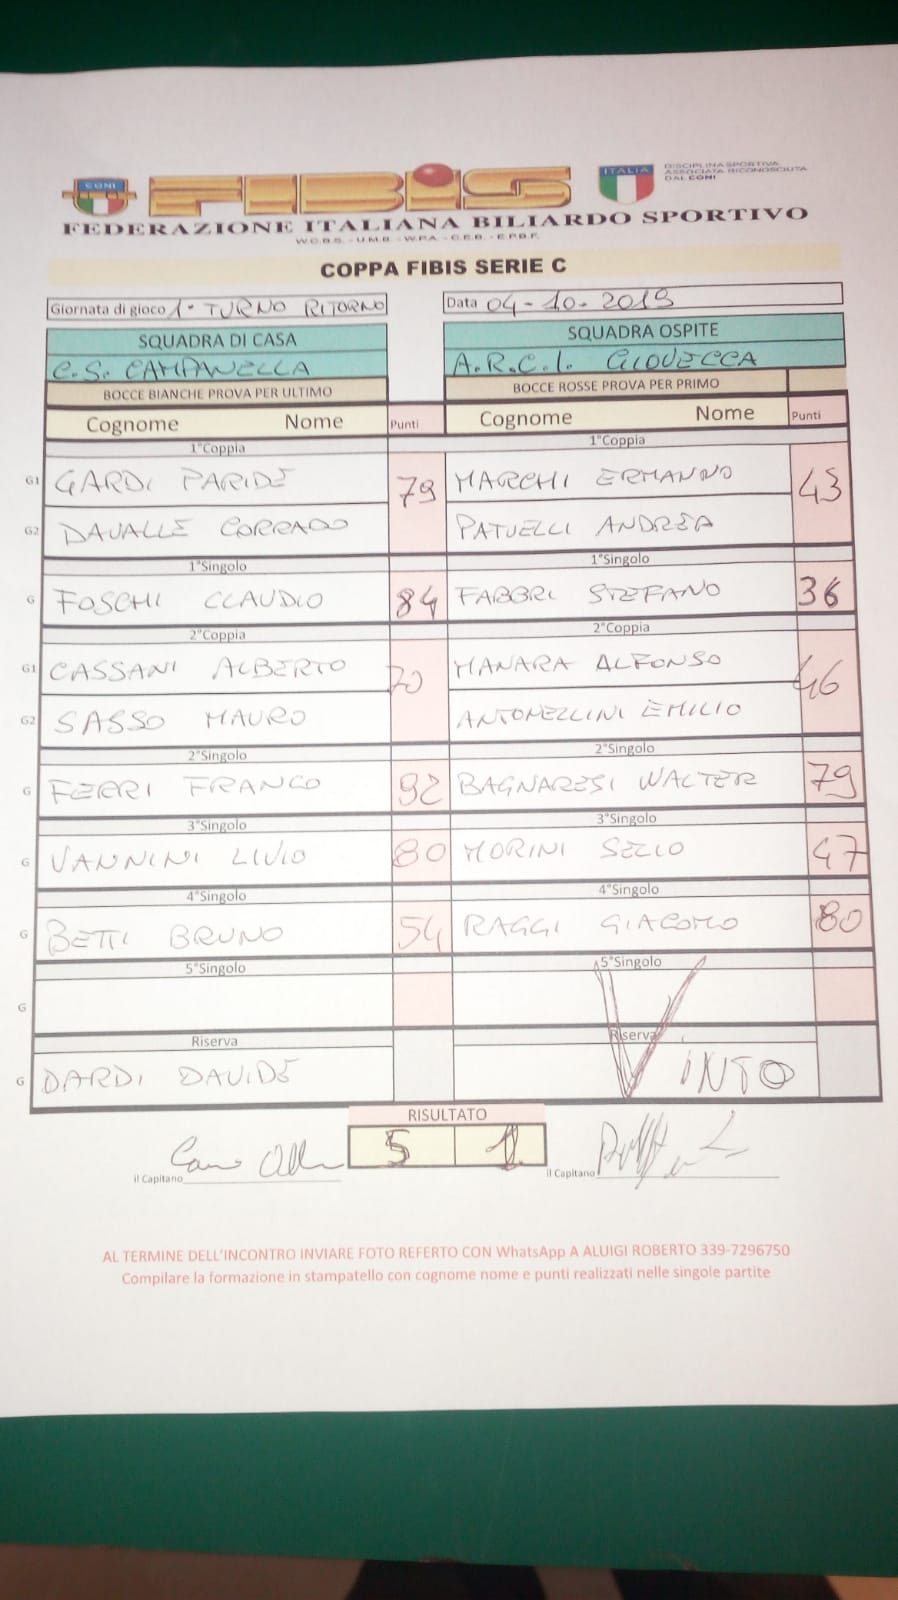 CONI
FIBIS
ITALIA
DISCIPLINA SPORTIVA
ASSOCIATA RICONOSCIUTA
DAL CONI
FEDERAZIONE ITALIANA BILIARDO SPORTIVO
W.C.B.S. - U.M.B. - W.P.A. - C.E.B. - E.P.B.F.
COPPA FIBIS SERIE C
Giornata di gioco 1° TURNO RITORNO Data 04-10-2019
SQUADRA DI CASA SQUADRA OSPITE
C.S. CAMPANELLA A.R.C.I. GIOVECCA
BOCCE BIANCHE PROVA PER ULTIMO BOCCE ROSSE PROVA PER PRIMO
Cognome Nome Punti Cognome Nome Punti
1°Coppia 1°Coppia
G1 GARDI PARIDE 79 MARCHI ERMANNO 43
G2 DAVALLE CORRADO PATUELLI ANDREA
1°Singolo 1°Singolo
G FOSCHI CLAUDIO 84 FABBRI STEFANO 36
2°Coppia 2°Coppia
G1 CASSANI ALBERTO 70 MANARA ALFONSO 46
G2 SASSO MAURO ANTONELLINI EMILIO
2°Singolo 2°Singolo
G FERRI FRANCO 92 BAGNARESI WALTER 79
3°Singolo 3°Singolo
G VANNINI LIVIO 80 MORINI SEZIO 47
4°Singolo 4°Singolo
G BETTI BRUNO 54 RAGGI GIACOMO 80
5°Singolo 5°Singolo
G
Riserva Riserva
G DARDI DAVIDE VINTO
RISULTATO
5 1
il Capitano il Capitano
AL TERMINE DELL'INCONTRO INVIARE FOTO REFERTO CON WhatsApp A ALUIGI ROBERTO 339-7296750
Compilare la formazione in stampatello con cognome nome e punti realizzati nelle singole partite